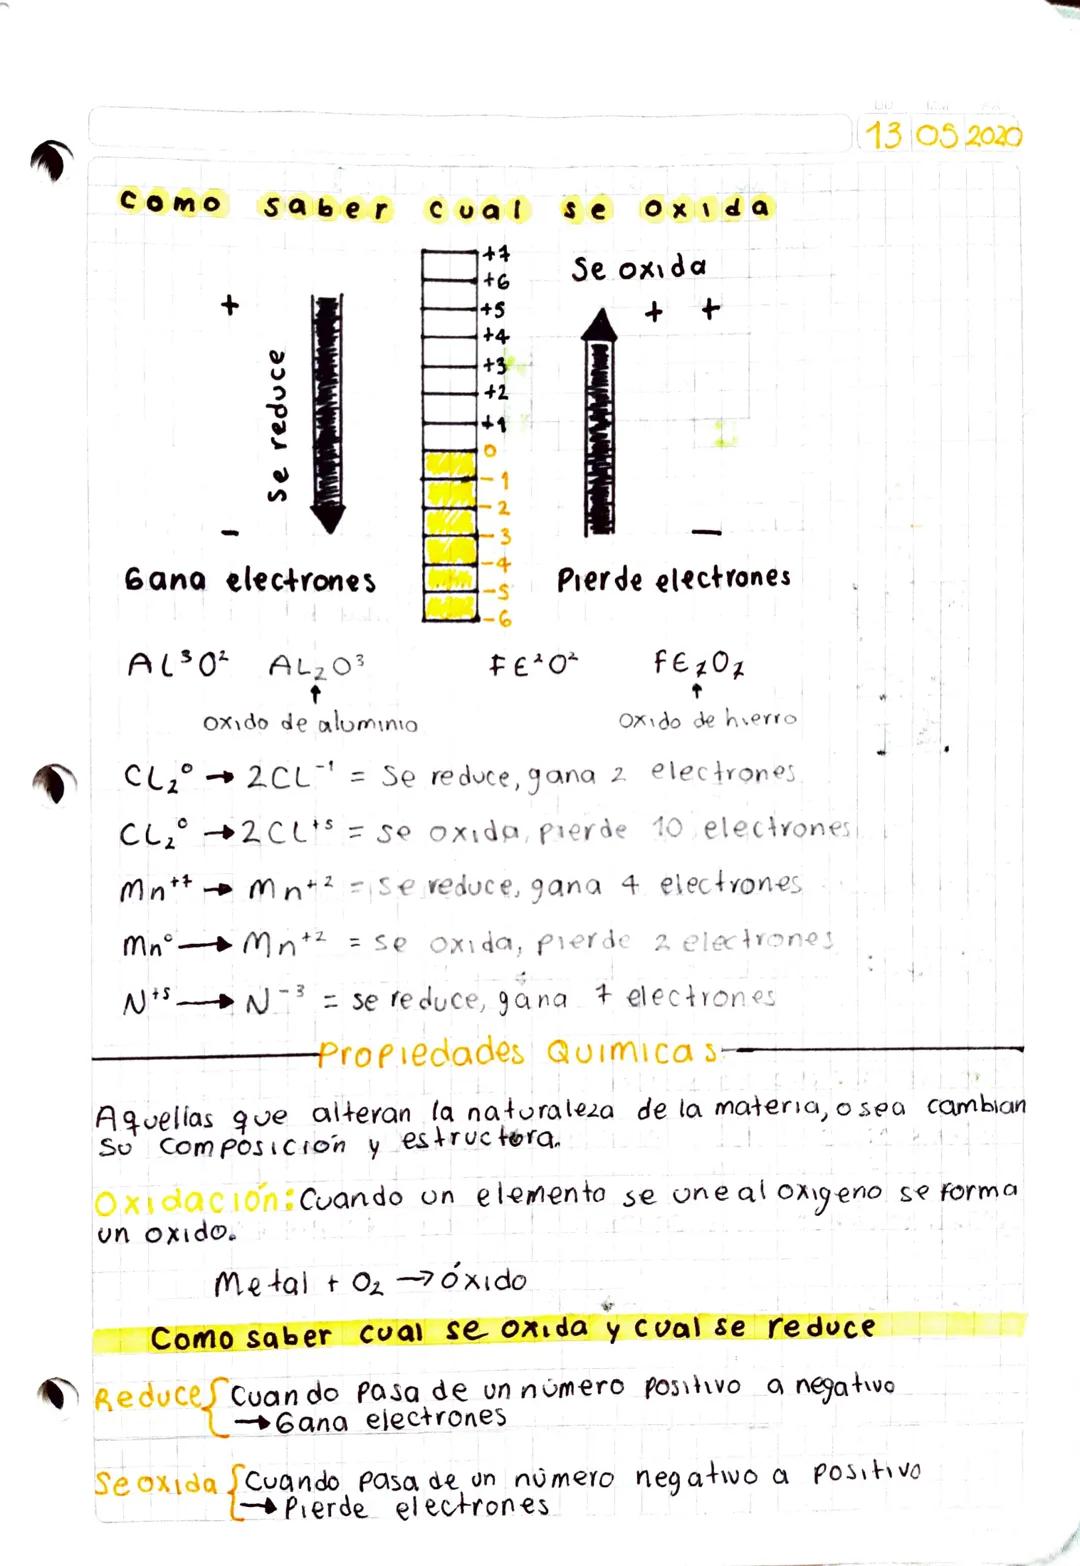 13 05 2020
Como saber cual se oxida
+7
+6
+5
+4
+3
+2
+1
0
-1
-2
-3
-4
-5
-6
+
Se reduce
-
Gana electrones
Se oxida
+ +
-
Pierde electrones
AL³O² AL₂O³ FE²O² FE₂O₂
↑ ↑
oxido de aluminio oxido de hierro
CL₂⁰ → 2CL⁻¹ = Se reduce, gana 2 electrones
CL₂⁰ → 2CL⁺⁵ = se oxida, pierde 10 electrones
Mn⁺⁷ → Mn⁺² = se reduce, gana 4 electrones
Mn⁰ → Mn⁺² = se oxida, pierde 2 electrones
N⁺⁵ → N⁻³ = se reduce, gana 7 electrones
Propiedades Quimicas
Aquellas que alteran la naturaleza de la materia, osea cambian
su composición y estructura.
Oxidación: Cuando un elemento se une al oxigeno se forma
un oxido.
Metal + O₂ → óxido
Como saber cual se oxida y cual se reduce
Reduce { Cuando pasa de un número positivo a negativo
→ Gana electrones
Se oxida { Cuando pasa de un número negativo a positivo
→ Pierde electrones